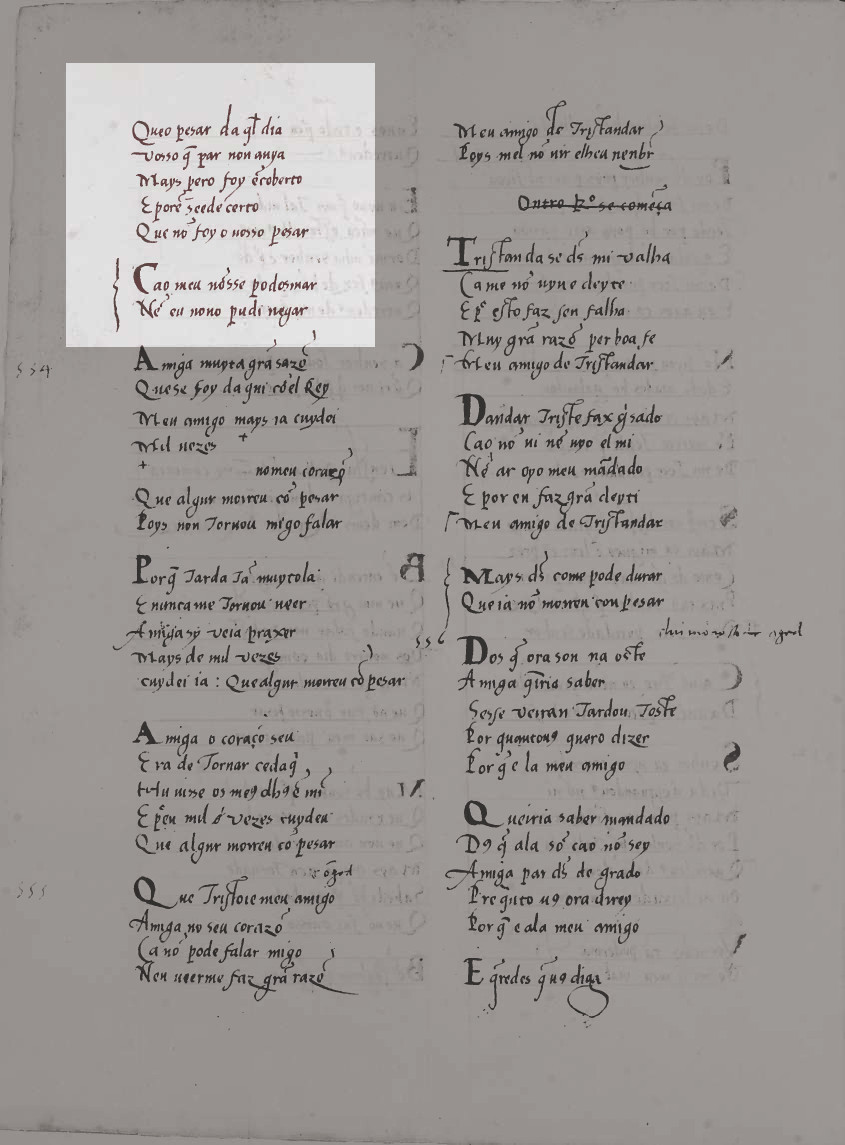 Queo pesar da q̄l dia
vosso q̄ par non auya
Mays pero foy ēcoberto
E porē seede certo
Que nō foy o uosso pesar
Cao meu nōsse podosmar
Nē eu nono pudi negar
554
Amiga muyta grā sazō
Quese foy da qui cōel Rey
Meu amigo mays ia cuydei
Mil uezes +
+ nomeu corazō
Que algur moireu cō pesar
Poys non Tornou mēgo falar
Porq̄ Tarda Tā muytola
E nunca me Tornou ueer
Amiga sy veia prazer
Mays de mil vezes
cuydei ia : Que algur moireu cō pesar
Amiga o coraçō seu
Era de Tornar cedaq̄
Hu uisse os me9 olh9 ē mī
E pēu mil vezes cuydeu
Que algur moireu cō pesar
555
Que Tristoie meu amigo
Amiga no seu corazō
Ca nō pode falar migo
Nen ueerme faz grā razō
Meu amigo de Tristandar
Poys mel nō uir elhea nenbr
Outro R.º se começa
Tristanda se d̄s mi valha
Ca me nō uyu e deyte
E p̄ esto faz sen falha
Muy grā razō per boa fe
Meu amigo de Tristandar
Dandar Triste fax g̃sado
Cao nō ui nē uyo el mi
Nē ar oyo meu mādado
E por en faz grā deyti
Meu amigo de Tristandar
Mays d̄s come pode durar
Que ia nō moireu con pesar
556
Dos q̄ ora son na oste
Amiga q̄iria saber
Sesse verran Tardou Toste
Por quantou9 quero dizer
Por q̄ e la meu amigo
Queiria saber mandado
D9 q̄ ala sō cao nō sey
Amiga par d̄s de grado
Pregūto u9 ora direy
Por q̄ e ala meu amigo
E q̄redes q̄u9 diga